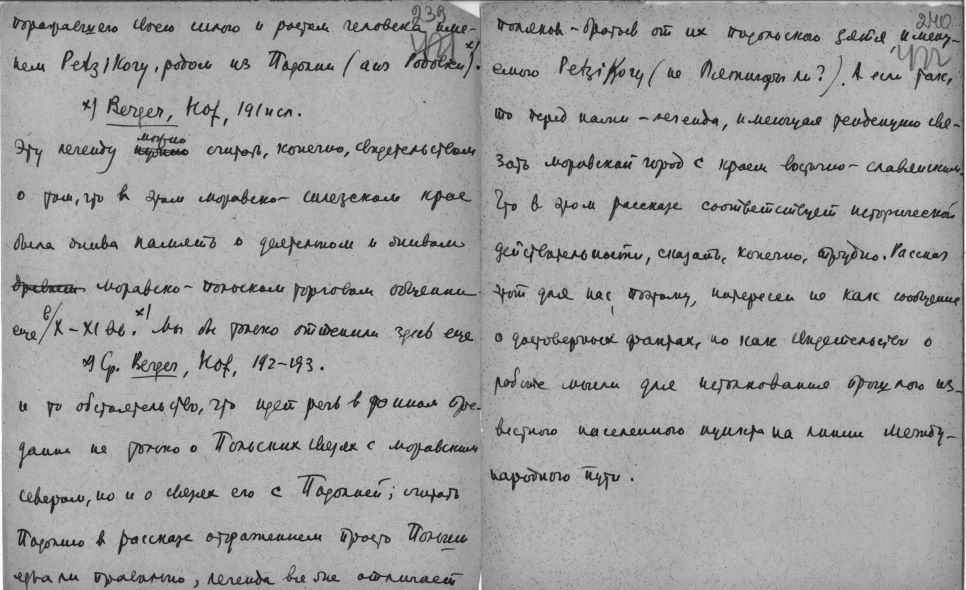 239
поражавшего своею силою и ростом человека име-
нем PetziKory, родом из Подолии (aus Podolien). x)
x) Berger, Hof, 191 исл.
Эту легенду можно считать, конечно, свидетельством
о том, что в этом моравско-силезском крае
была жива память о деятельном и живом
моравско-польском торговом общении
еще в X–XI вв. x) Мы бы только оттенили здесь еще
x) Ср. Berger, Hof, 192–193.
и то обстоятельство, что идет речь в данном пре-
дании не только о Польских связях с моравским
севером, но и о связях его с Подолией; считать
Подолию в рассказе отражением просто Польши
едва ли правильно, легенда все же отличает
240
поляков-братьев от их подольского зятя, имену-
емого PetziKory (не Пятигоры ли?). А если так,
то перед нами – легенда, имеющая тенденцию свя-
зать моравский город с краем восточно-славянским.
Что в этом рассказе соответствует исторической
действительности, сказать, конечно, трудно. Рассказ
этот для нас, поэтому, интересен не как сообщение
о достоверных фактах, но как свидетельство о
работе мысли для истолкования прошлого из-
вестного населенного пункта на линии между-
народного пути.